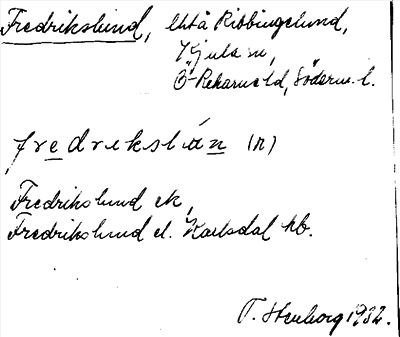 Fredrikslund, Utå Ribbingelund,
Kjula sn,
Ö-Rekarne hd, Söderm. l.
fredrekslún (n)
Fredrikslund ek,
Fredrikslund el. Karlsdal hb.
T. Stenborg 1932.